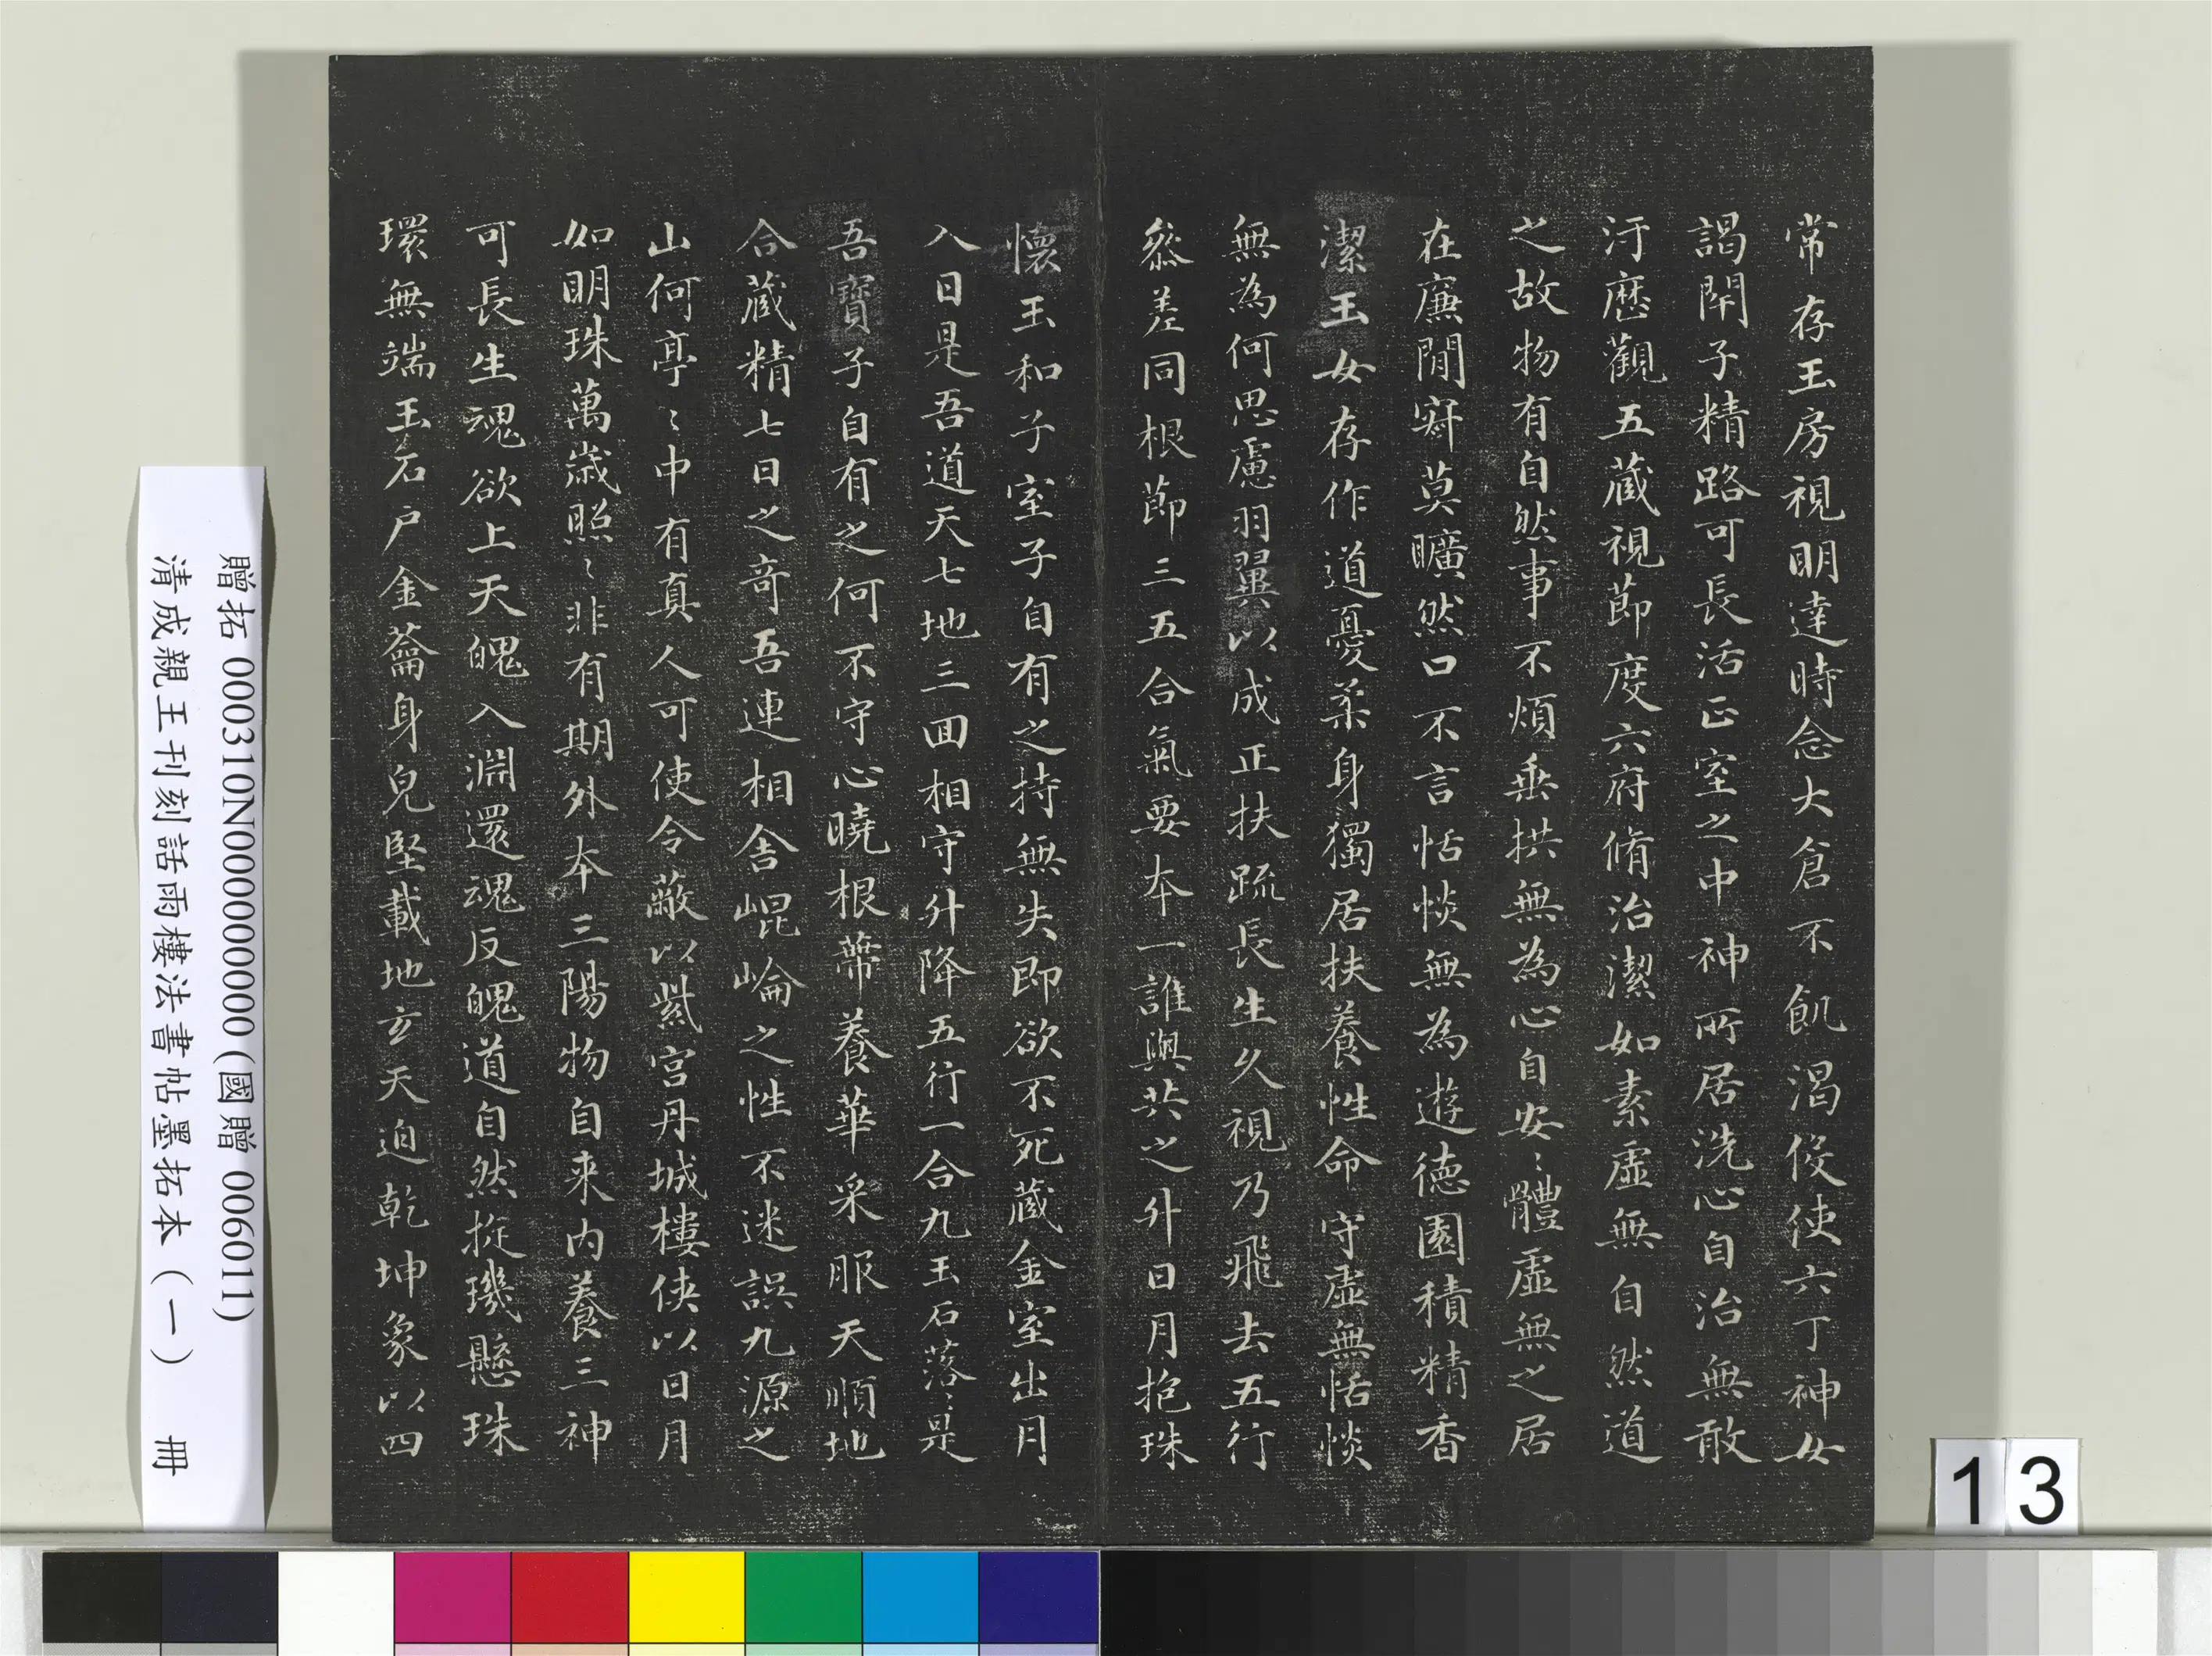 常存王房視明達時念大倉不飢渴役使六丁神女
謁閇子精路可長活正室之中神所居洗心自治無敢
汙歷觀五藏視節度六府脩治潔如素虛無自然道
之故物有自然事不煩垂拱無為心自安〻體虛無之居
在廉閒寂莫曠然口不言恬惔無為遊德園積精香
潔玉女存作道憂柔身獨居扶養性命守虛無恬惔
無為何思慮羽翼以成正扶疏長生久視乃飛去五行
叅差同根節三五合氣要本一誰與共之升日月抱珠
懷玉和子室子自有之持無失即欲不死藏金室出月
入日是吾道天七地三回相守升降五行一合九玉石落〻是
吾寶子自有之何不守心曉根蔕養華采服天順地
合藏精七日之奇吾連相舍崐崘之性不迷誤九源之
山何亭〻中有真人可使令蔽以紫宮丹城樓俠以日月
如明珠萬歲照〻非有期外本三陽物自来內養三神
可長生魂欲上天魄入淵還魂反魄道自然旋璣懸珠
環無端玉石戶金籥身皃堅載地玄天迫乾坤象以四
贈拓 000310N000000000(國贈 006011)
清成親王刊刻話雨樓法書帖墨拓本(一) 冊
13